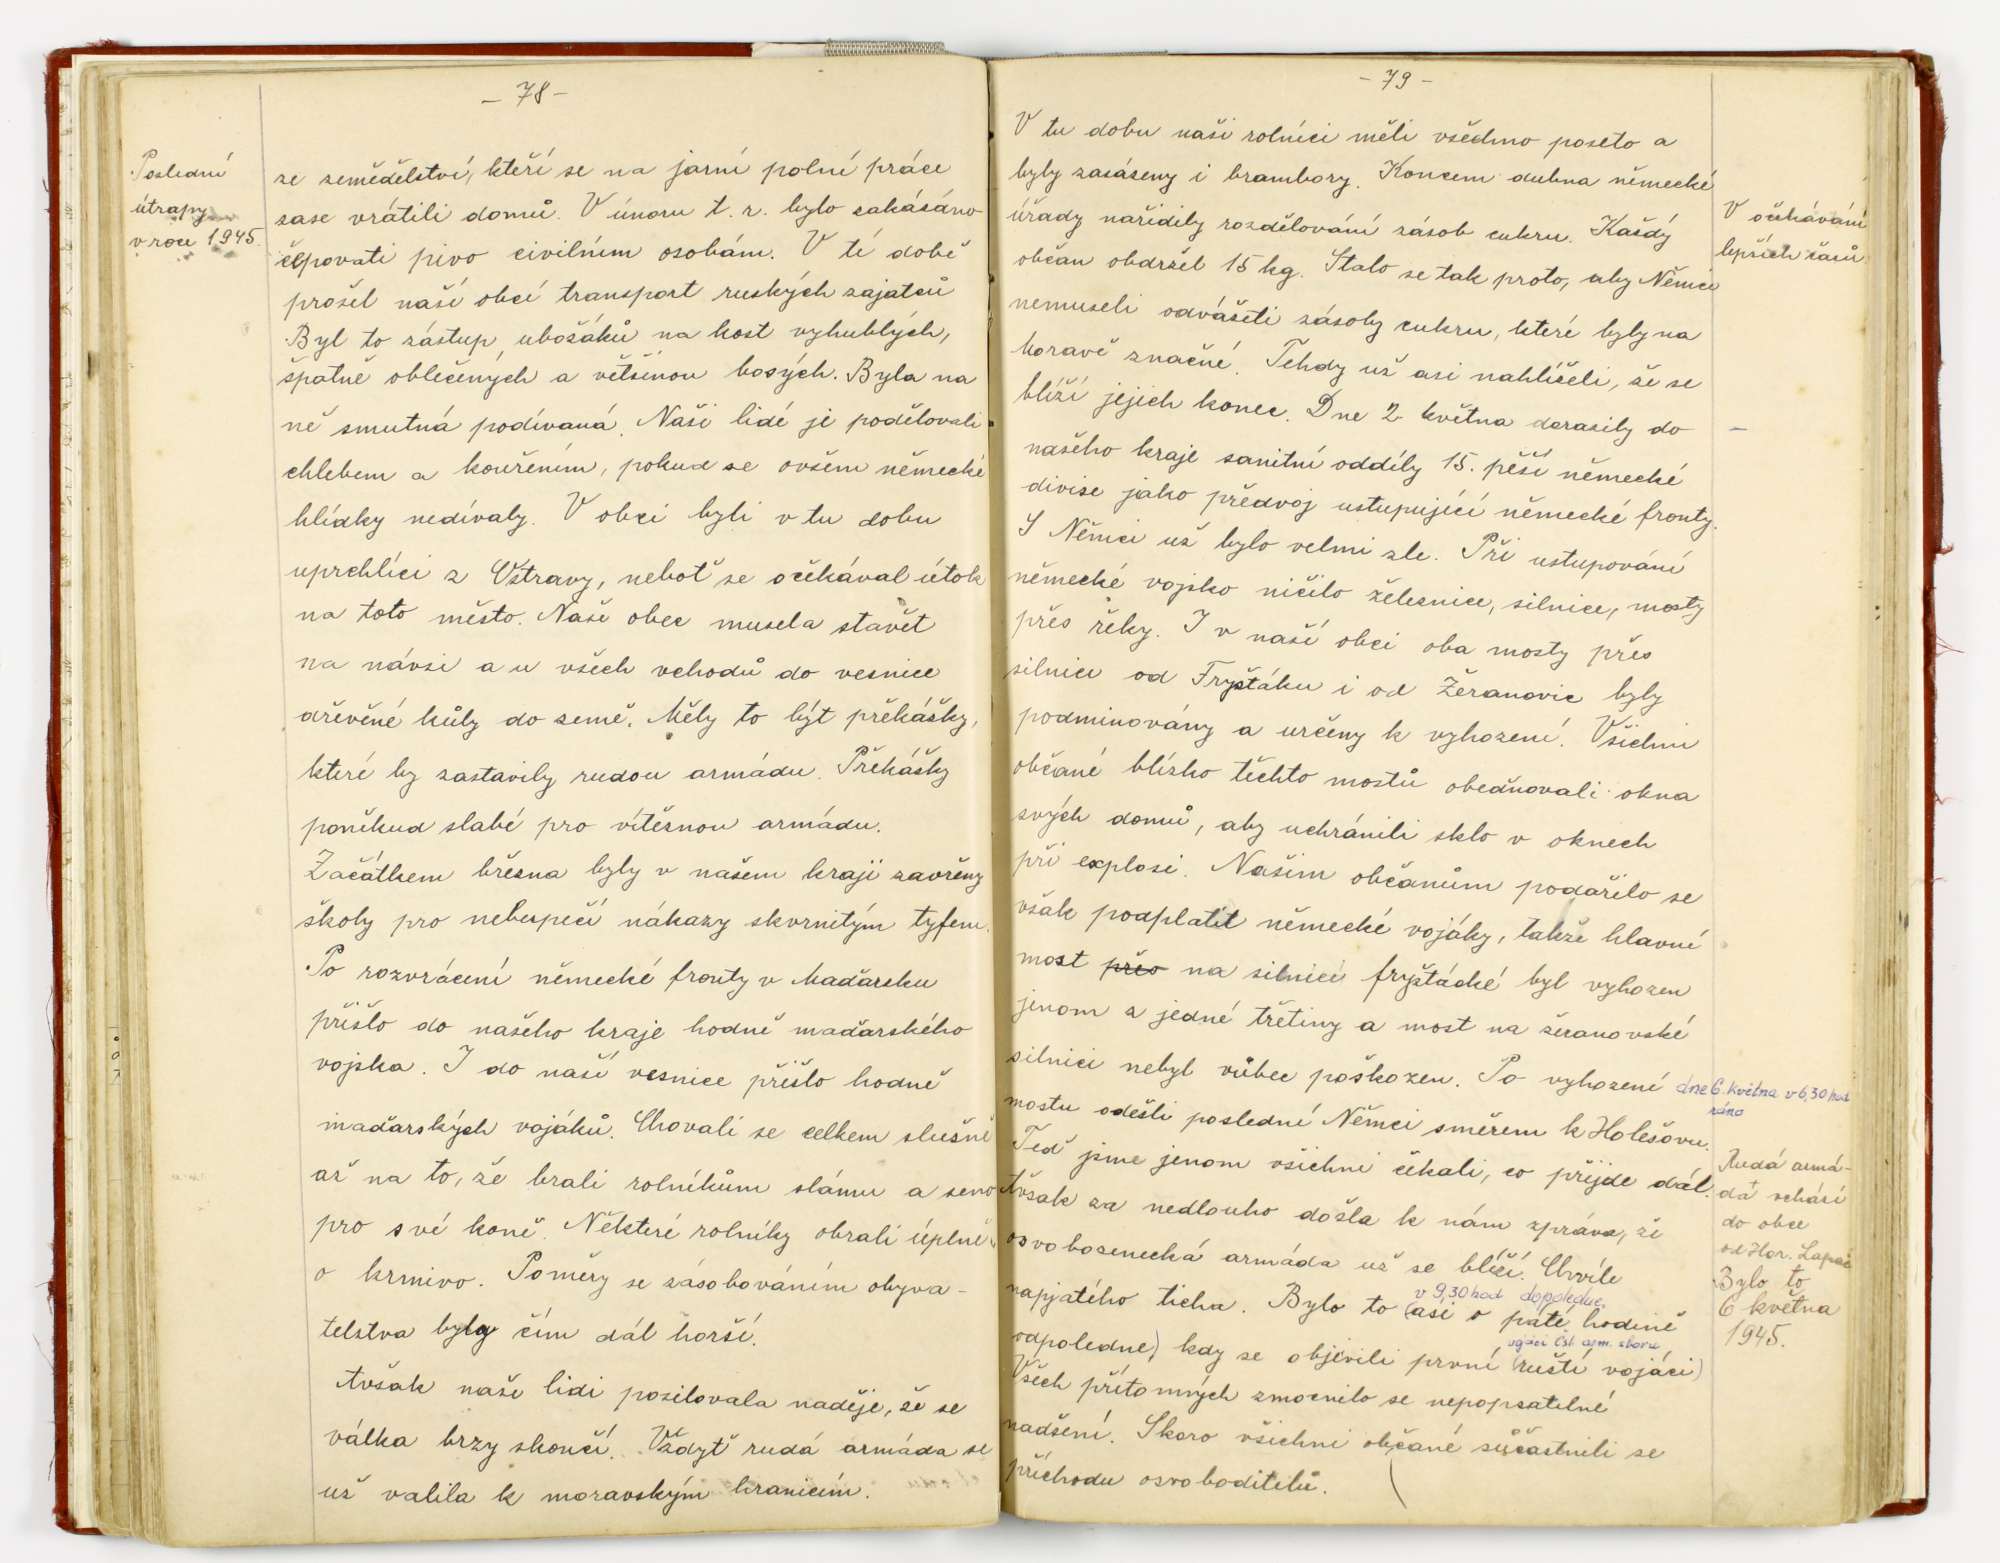 - 78 -
Poslední
útrapy
v roce 1945.
ze zemědělství, kteří se na jarní polní práce
zase vrátili domů. V únoru t. r. bylo zakázáno
čepovati pivo civilním osobám. V té době
prošel naší obcí transport ruských zajatců
Byl to zástup ubožáků na kost vyhublých,
špatně oblečených a většinou bosých. Byla na
ně smutná podívaná. Naši lidé je podělovali
chlebem a kouřením, pokud se ovšem německé
hlídky nedívaly. V obci byli v tu dobu
uprchlíci z Ostravy, neboť se očekával útok
na toto město. Naše obec musela stavět
na návsi a u všech vchodů do vesnice
dřevěné kůly do země. Měly to být překážky,
které by zastavily rudou armádu. Překážky
poněkud slabé pro vítěznou armádu.
Začátkem března byly v našem kraji zavřeny
školy pro nebezpečí nákazy skvrnitým tyfem.
Po rozvrácení německé fronty v Maďarsku
přišlo do našeho kraje hodně maďarského
vojska. I do naší vesnice přišlo hodně
maďarských vojáků. Chovali se celkem slušně
až na to, že brali rolníkům slámu a seno
pro své koně. Některé rolníky obrali úplně
o krmivo. Poměry se zásobováním obyva-
telstva byly čím dál horší.
Avšak naše lidi posilovala naděje, že se
válka brzy skončí. Vždyť rudá armáda se
už valila k moravským hranicím.
- 79 -
V tu dobu naši rolníci měli všechno poseto a
byly zasázeny i brambory. Koncem dubna německé
úřady nařídily rozdělování zásob cukru. Každý
občan obdržel 15 kg. Stalo se tak proto, aby Němci
nemuseli odvážeti zásoby cukru, které byly na
Moravě značné. Tehdy už asi nahlíželi, že se
blíží jejich konec. Dne 2 května dorazily do
našeho kraje sanitní oddíly 15. pěší německé
divise jako předvoj ustupující německé fronty.
S Němci už bylo velmi zle. Při ustupování
německé vojsko ničilo železnice, silnice, mosty
přes řeky. I v naší obci oba mosty přes
silnici od Fryštáku i od Žeranovic byly
podminovány a určeny k vyhození. Všichni
občané blízko těchto mostů obedňovali okna
svých domů, aby uchránili sklo v oknech
při explosi. Našim občanům podařilo se
však podplatit německé vojáky, takže hlavní
most přes na silnici fryštácké byl vyhozen
jenom z jedné třetiny a most na žeranovské
silnici nebyl vůbec poškozen. Po vyhození dne 6. května v 6,30 hod
ráno
mostu odešli poslední Němci směrem k Holešovu.
Teď jsme jenom všichni čekali, co přijde dál.
Avšak za nedlouho došla k nám zpráva, že
osvobozenecká armáda už se blíží. Chvíle
napjatého ticha. Bylo to (asi o páté hodině
v 9,30 hod dopoledne
odpoledne) kdy se objevili první (ruští vojáci)
vojáci čsl. arm. sboru
Všech přítomných zmocnilo se nepopsatelné
nadšení. Skoro všichni občané súčastnili se
příchodu osvoboditelů.
V očekávání
lepších časů
Rudá armá-
da vchází
do obce
od Hor. Lapač
Bylo to
6 května
1945.